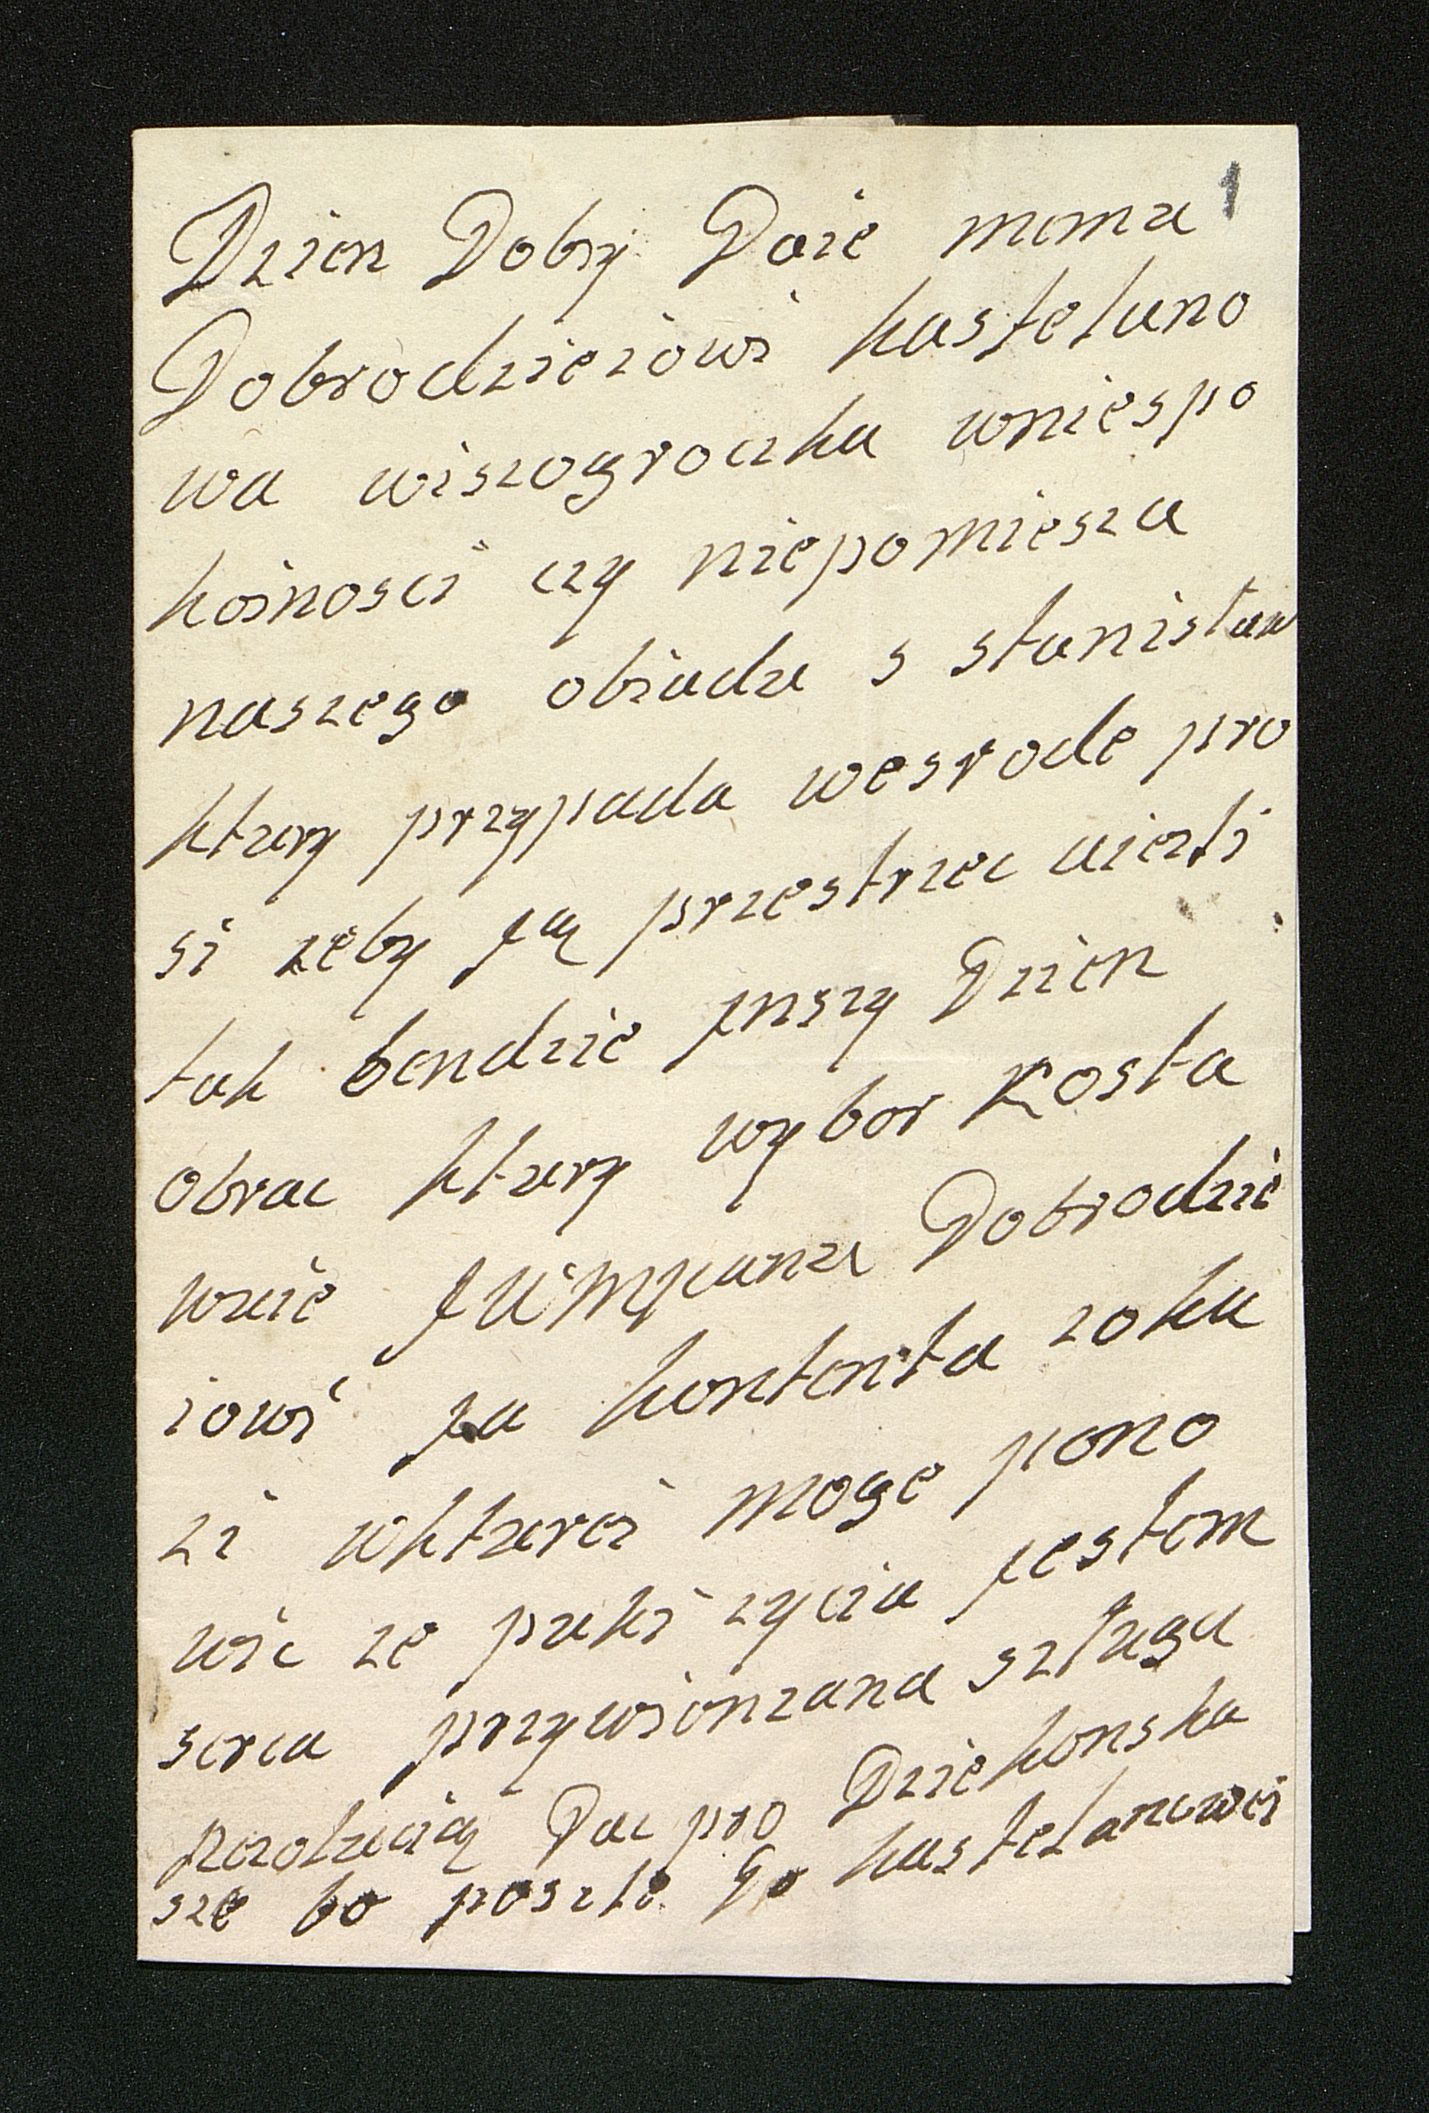 1
Dzien Dobry Daie memu
Dobrodzieiowi kastelano
wa wiszogroczka wniespo
koinosci czy niepomiesza
naszego obiadu s stanisław
ktury przypada wesrode pro
si zeby ją przestrzec
tak bendzie jnszy Dzien
obrac ktury wybor zosta
wuie JWimpanu Dobrodzie
iowi ja kontenta zoka
zi wkturei moge pono
wic ze puki zycia jestem
serca przywionzana sztuga
Dac pro Dziekonska
sze bo poszle Go kastelanowei